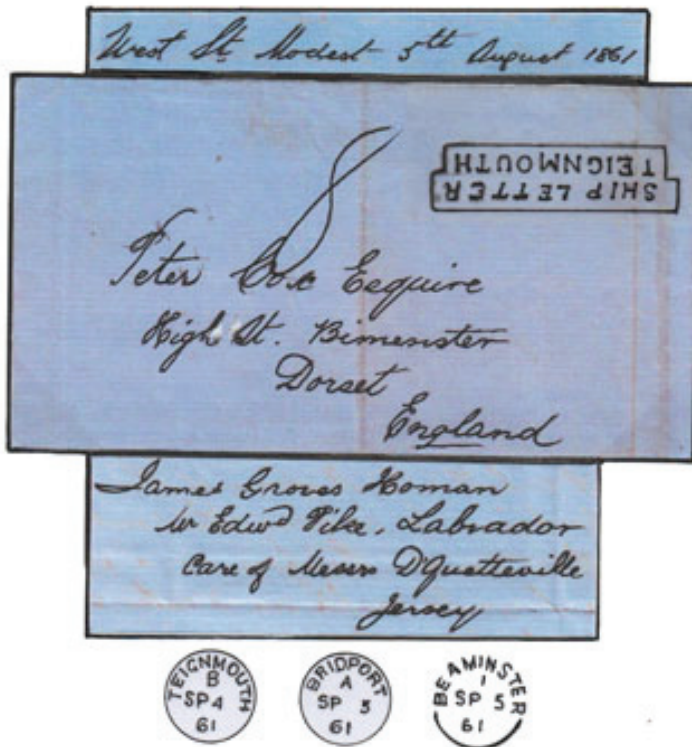 West St. Modest 5th August 1861
8
SHIP LETTER
TEIGNMOUTH
Peter Cox Esquire
High St. Bimenster
Dorset
England
James Groves Homan
Mr Edwd Pike, Labrador
Care of Messrs D'Quetteville
Jersey
TEIGNMOUTH
B
SP 4
61
BRIDPORT
A
SP 5
61
BEAMINSTER
1
SP 5
61